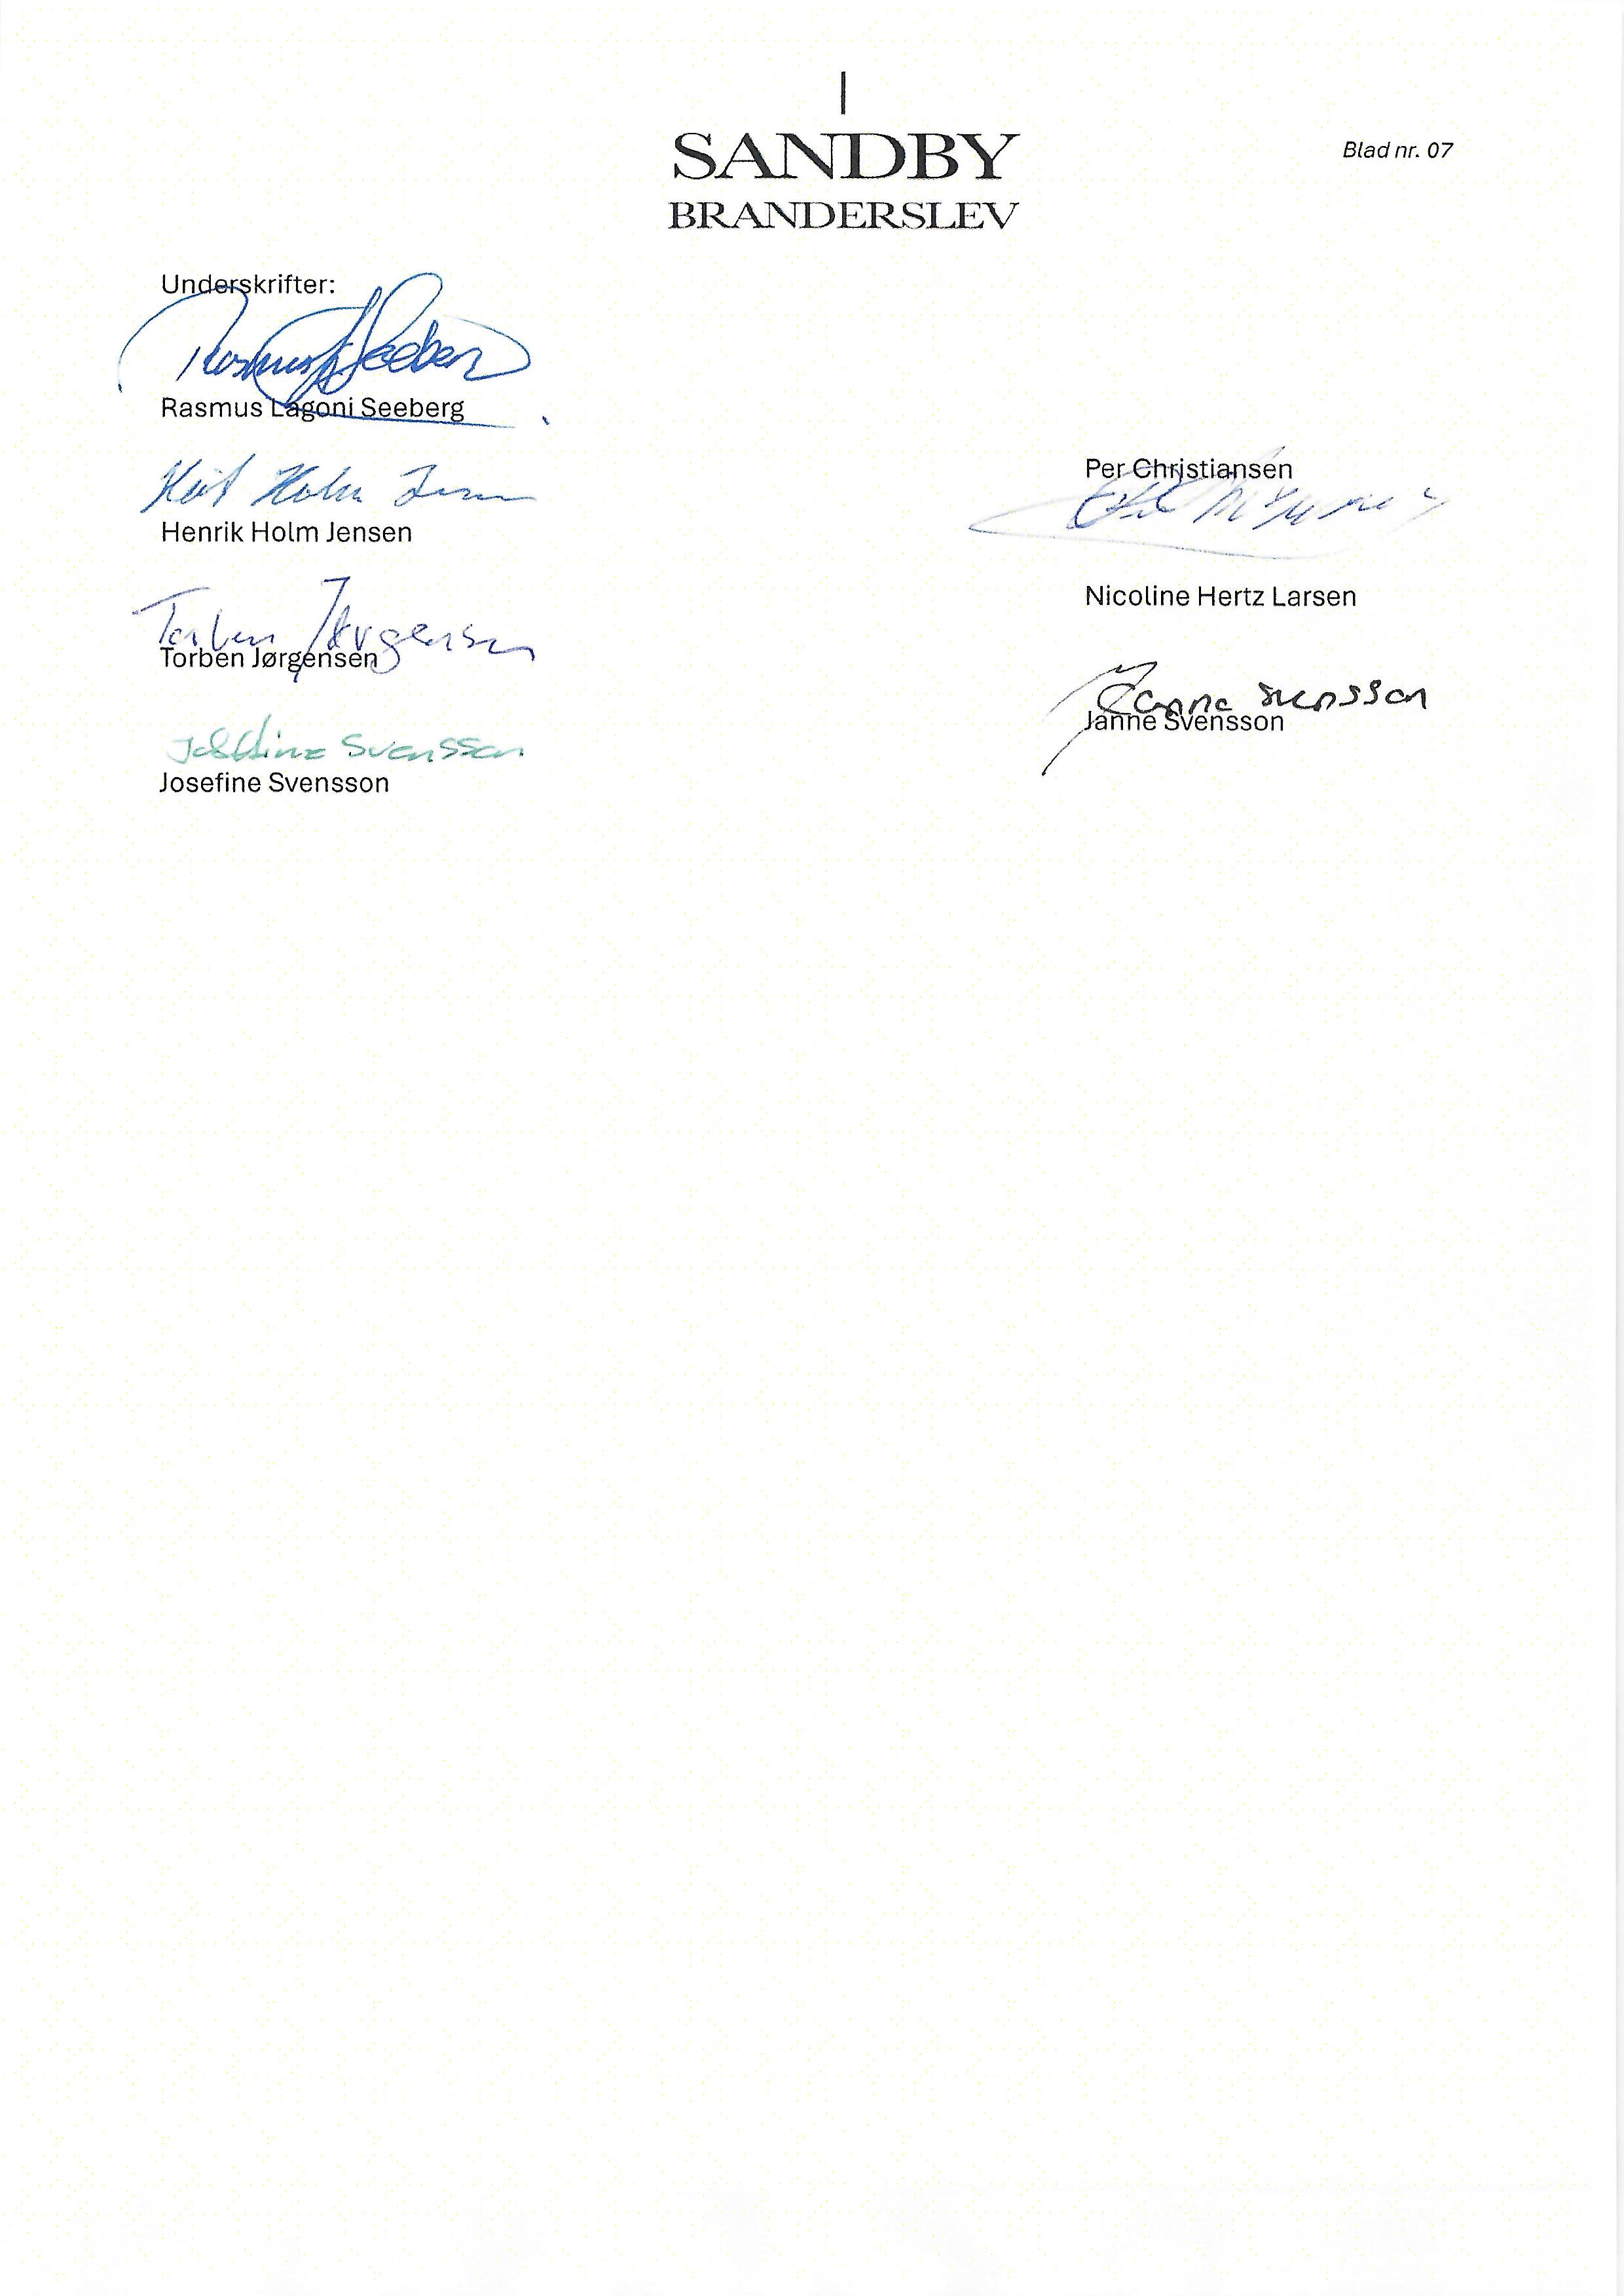 SANDBY
BRANDERSLEV
Blad nr. 07
Underskrifter:
Rasmus Seeberg
Rasmus Lagoni Seeberg
Holm Jensen
Henrik Holm Jensen
Torben Jørgensen
Torben Jørgensen
Josefine Svensson
Josefine Svensson
Per Christiansen
Nicoline Hertz Larsen
Janne Svensson
Janne Svensson